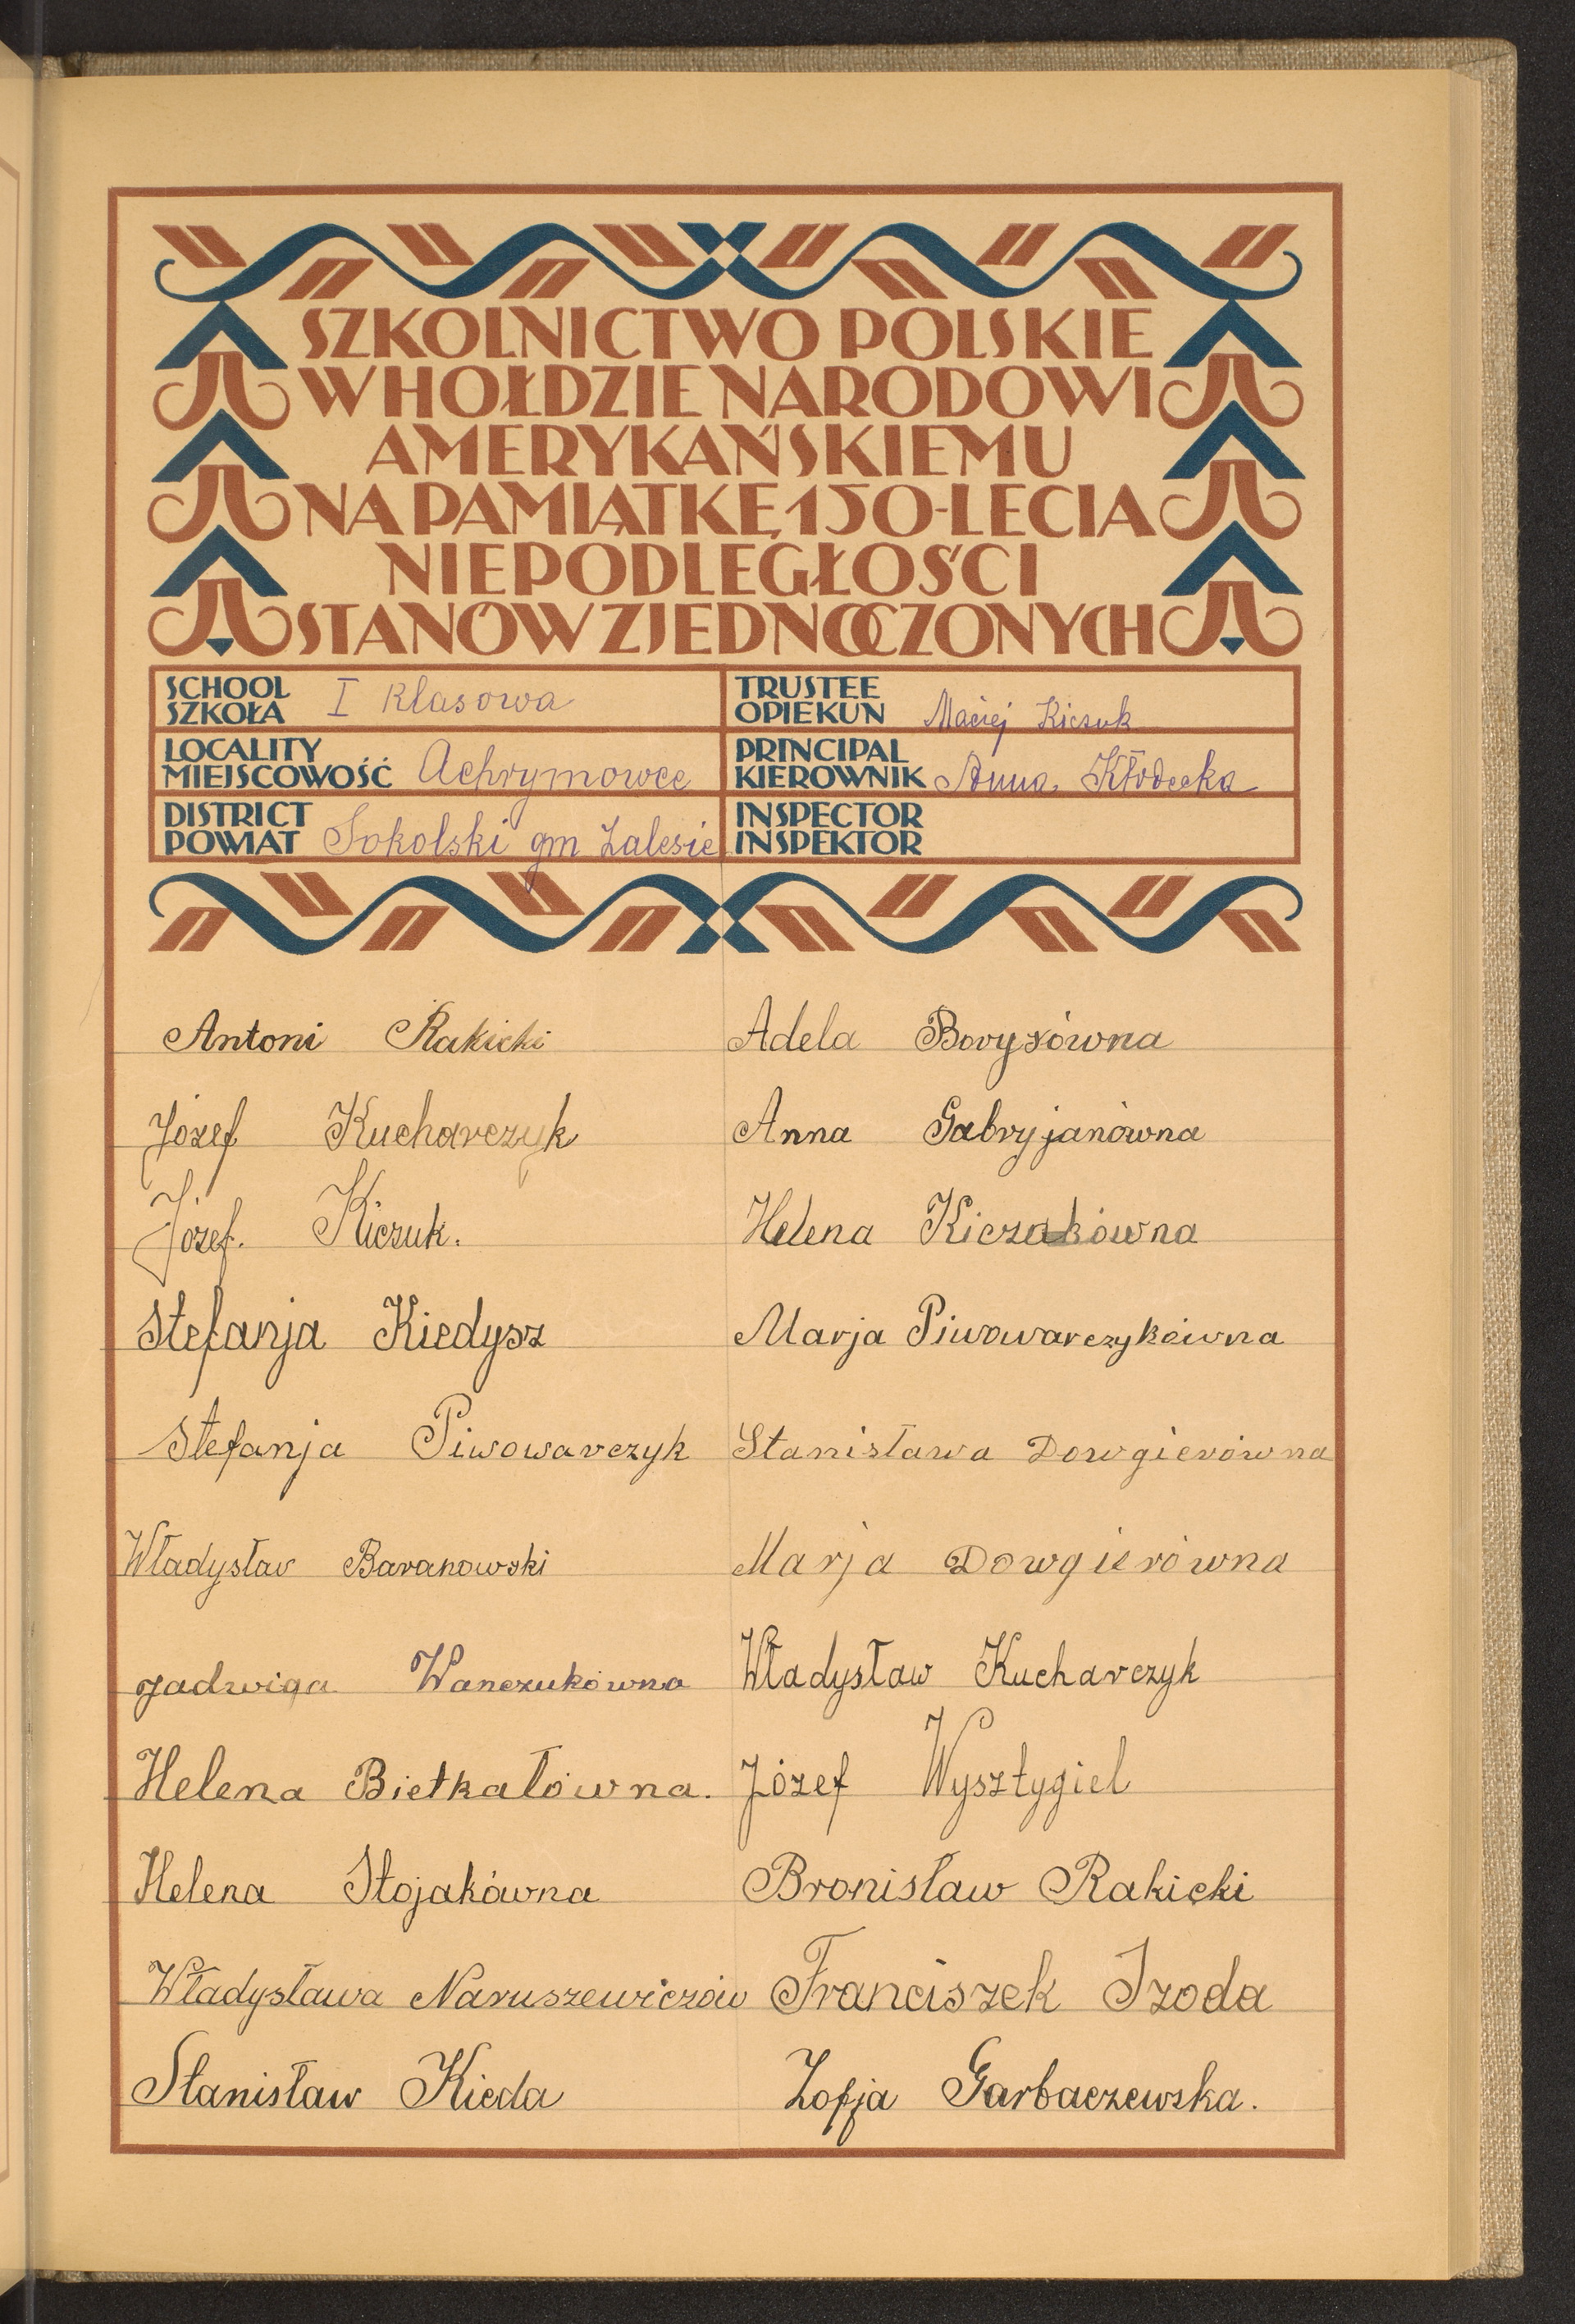 SZKOLNICTWO POLSKIE
W HOŁDZIE NARODOWI
AMERYKAŃSKIEMU
NA PAMIĄTKĘ 150-LECIA
NIEPODLEGŁOŚCI
STANÓW ZJEDNOCZONYCH
SCHOOL
SZKOŁA I klasowa
TRUSTEE
OPIEKUN Maciej Kiczuk
LOCALITY
MIEJSCOWOŚĆ Achrymowce
PRINCIPAL
KIEROWNIK Anna Kłodecka
DISTRICT
POWIAT Sokolski gm Zalesie
INSPECTOR
INSPEKTOR
Antoni Rakicki
Adela Borysówna
Józef Kucharczyk
Anna Gabryjanówna
Józef. Kiczuk.
Helena Kiczukówna
Stefanja Kiedysz
Marja Piwowarczykówna
Stefanja Piwowarczyk
Stanisława Dowgierówna
Władysław Baranowski
Marja Dowgierówna
Jadwiga Wanczukówna
Władysław Kucharczyk
Helena Bietkałówna.
Józef Wysztygiel
Helena Stojakówna
Bronisław Rakicki
Władysława Naruszewiczów
Franciszek Izoda
Stanisław Kieda
Zofja Garbaczewska.